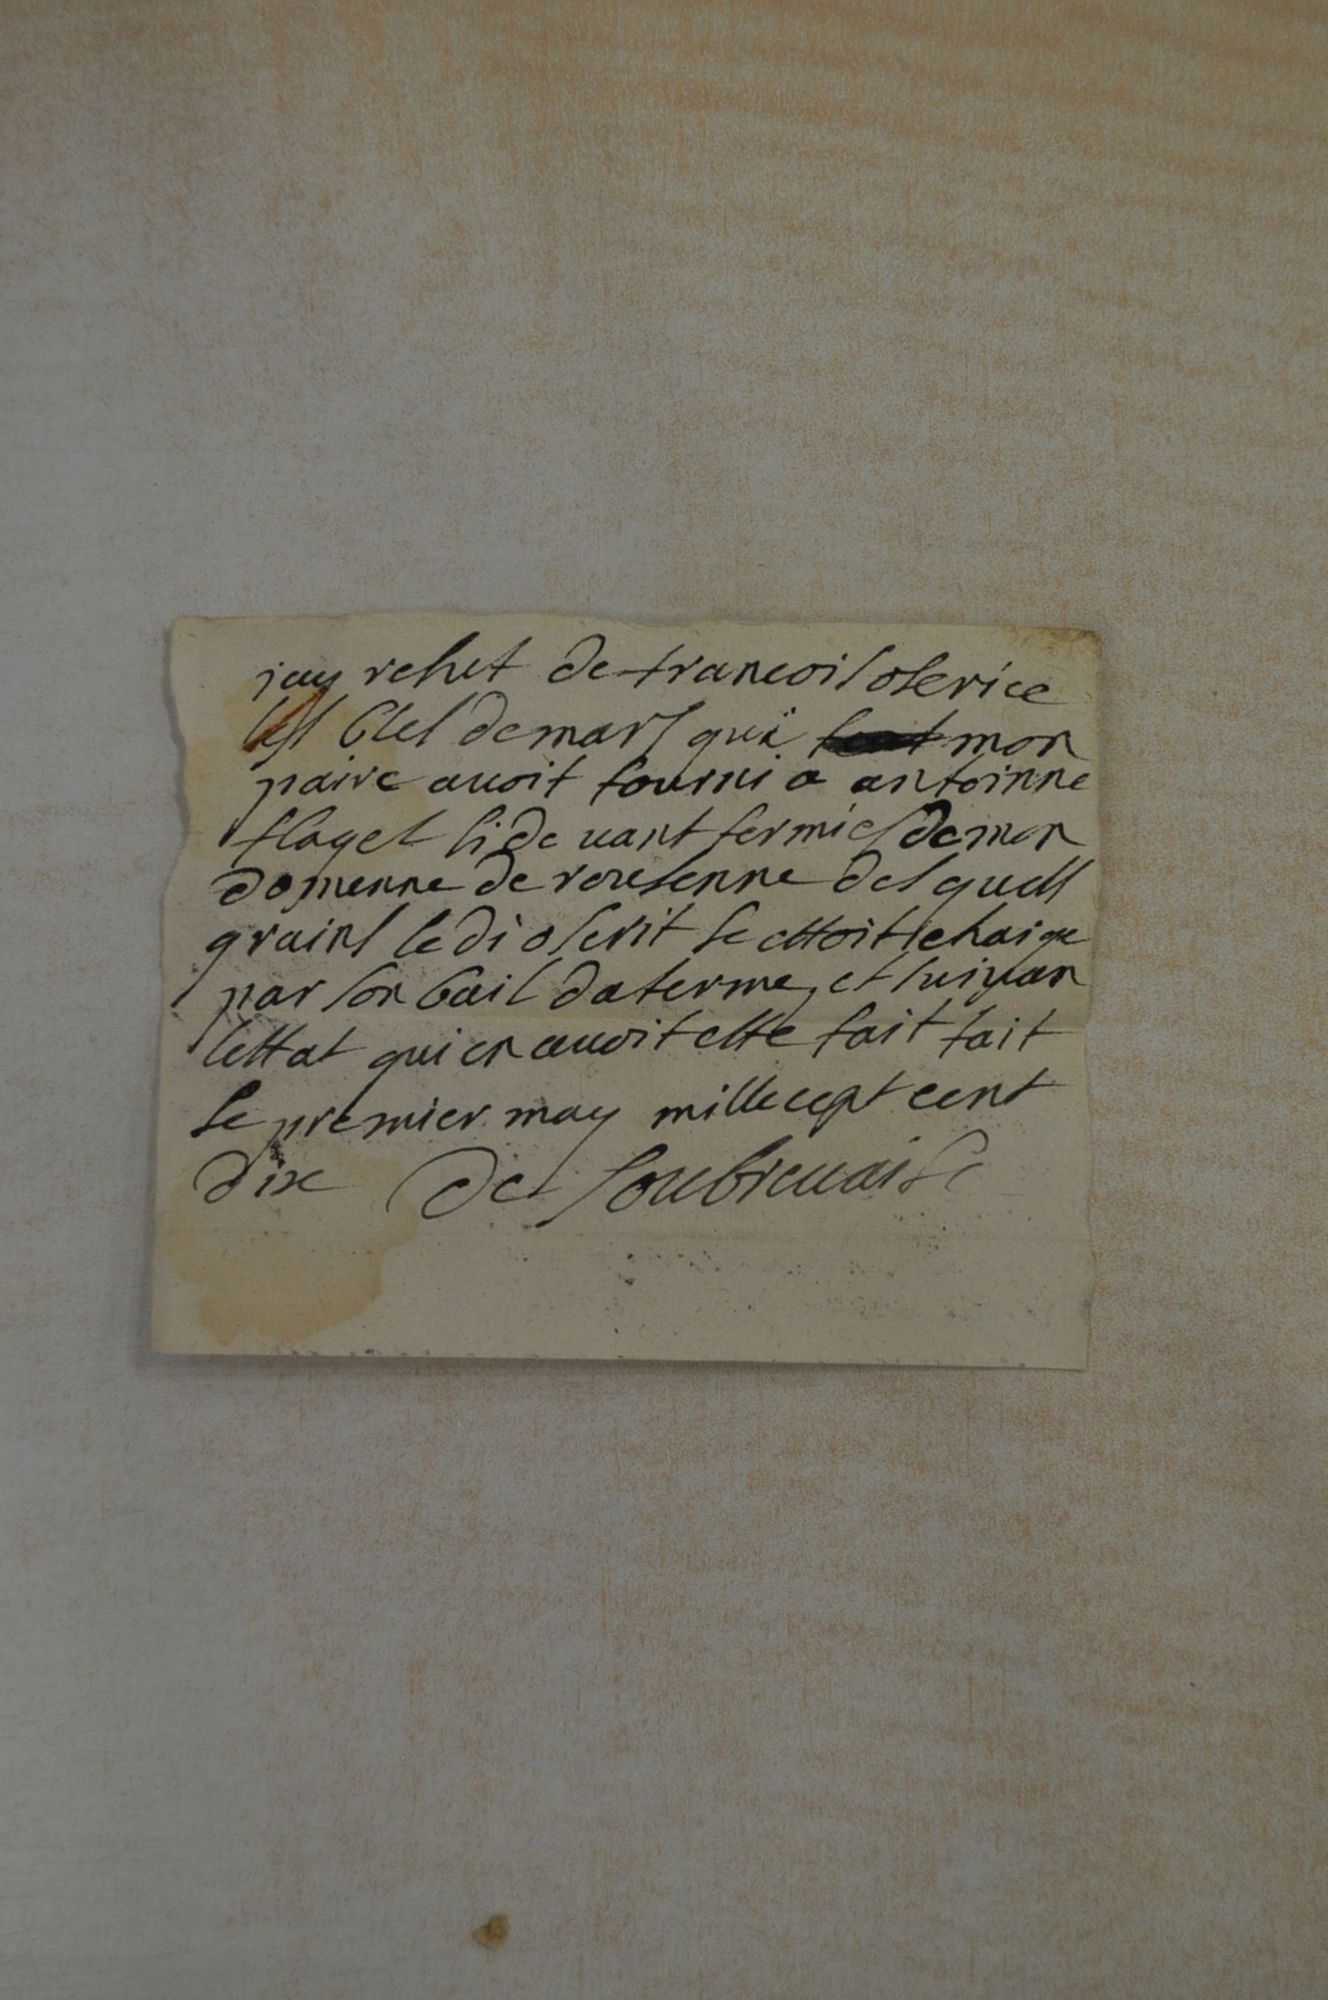 jay resut de francois oserice
les bles de mars qui mon
paire avoit fourni a antoinne
flaget si de vant fermies de mon
domenne de rousenne des quels
grains le di oserit se estoit chaige
par son bail da ferme, et suivan
lestat qui en avoit este fait fait
le premier may mille cept cent
dix De Soubrevaise